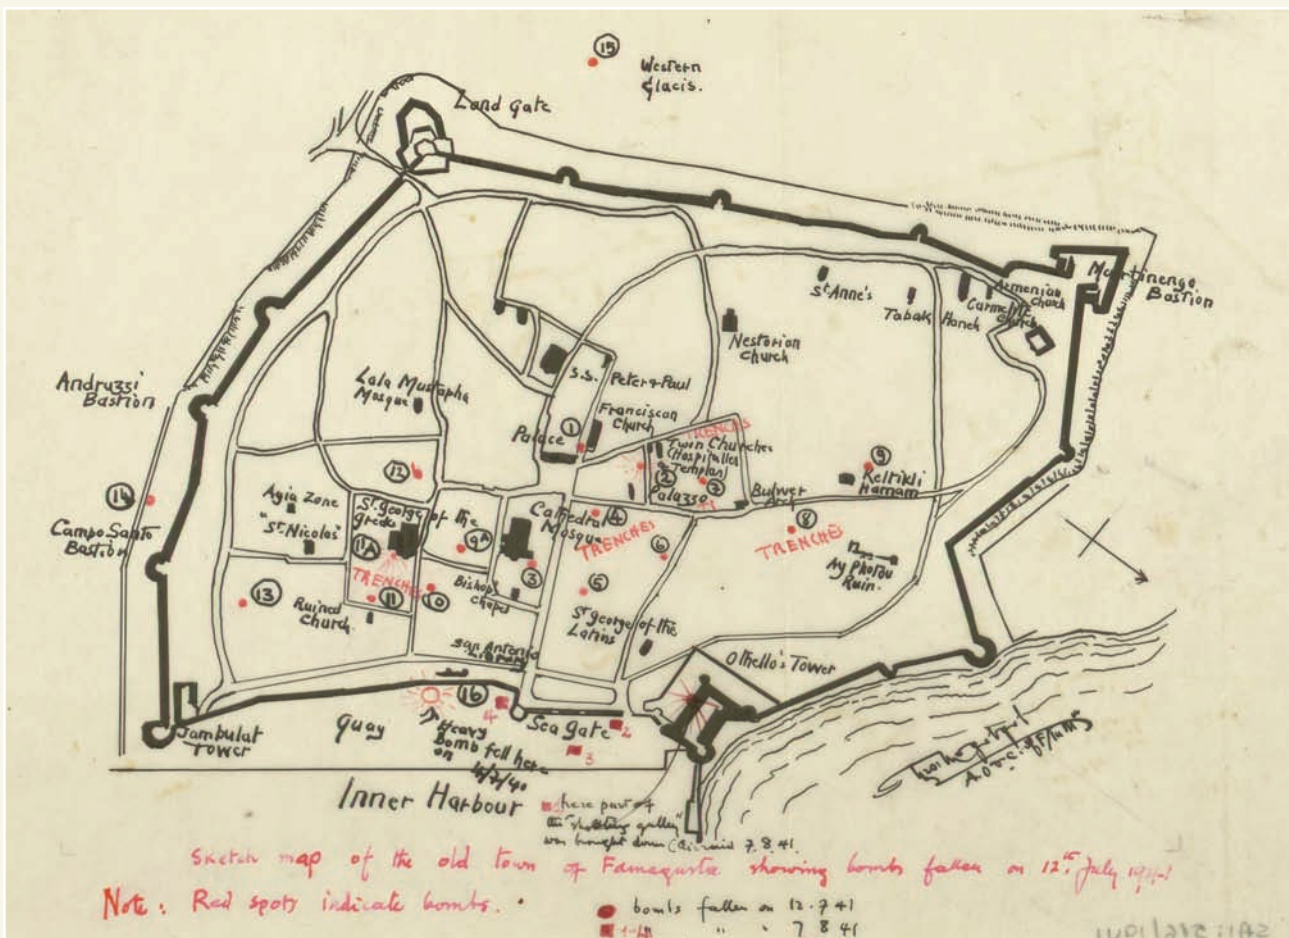 15
Western
Glacis.
Land gate
Martinengo
Bastion
Armenian
Church
Carmelite
Church
St Anne's
Tabak Haneh
Nestorian
Church
Andruzzi
Bastion
Lala Mustapha
Mosque
S.S. Peter & Paul
Franciscan
Church
Palace
1
TRENCHES
Twin Churches
(Hospitaller
Templar)
2
7
Palazzo
Bulwer
Arch
9
Keltikli
Hamam
12
14
Campo Santo
Bastion
Agia Zone
"St Nicolas"
St. George of the
Greeks
11A
9A
Cathedral
Mosque
4
TRENCHES
6
8
TRENCHES
Ay Photou
Ruin.
3
5
TRENCHES
13
Ruined
Church.
11
10
Bishop's
Chapel
St George of the
Latins
San Antonio
Othello's Tower
16
Jambulat
Tower
Quay
Heavy
bomb fell here
on
4
Sea Gate
2
3
Inner Harbour
here part of
the
was brought down 7.8.41.
Sketch map of the old town of Famagusta showing bombs fallen on 12th July 1941
Note: Red spots indicate bombs.
bombs fallen on 12.7.41
1-4 " " " 7 8 41